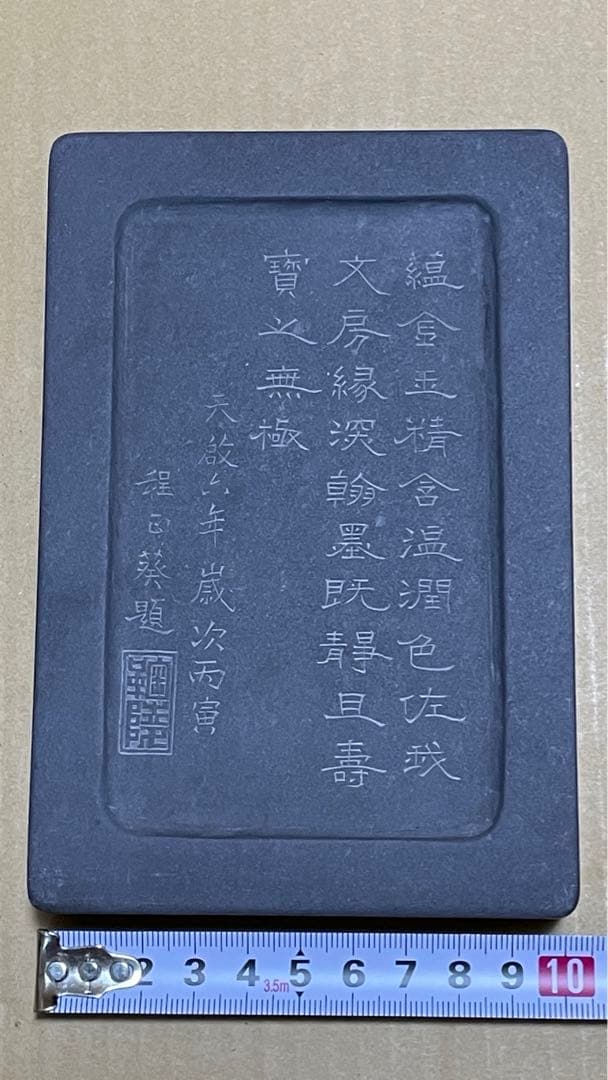 蘊金玉精含温潤色佐我
文房緣深翰墨既靜且壽
寶之無極
天啟六年歲次丙寅
程正葵題
2 3 4 5 6 7 8 9 10
3.5m